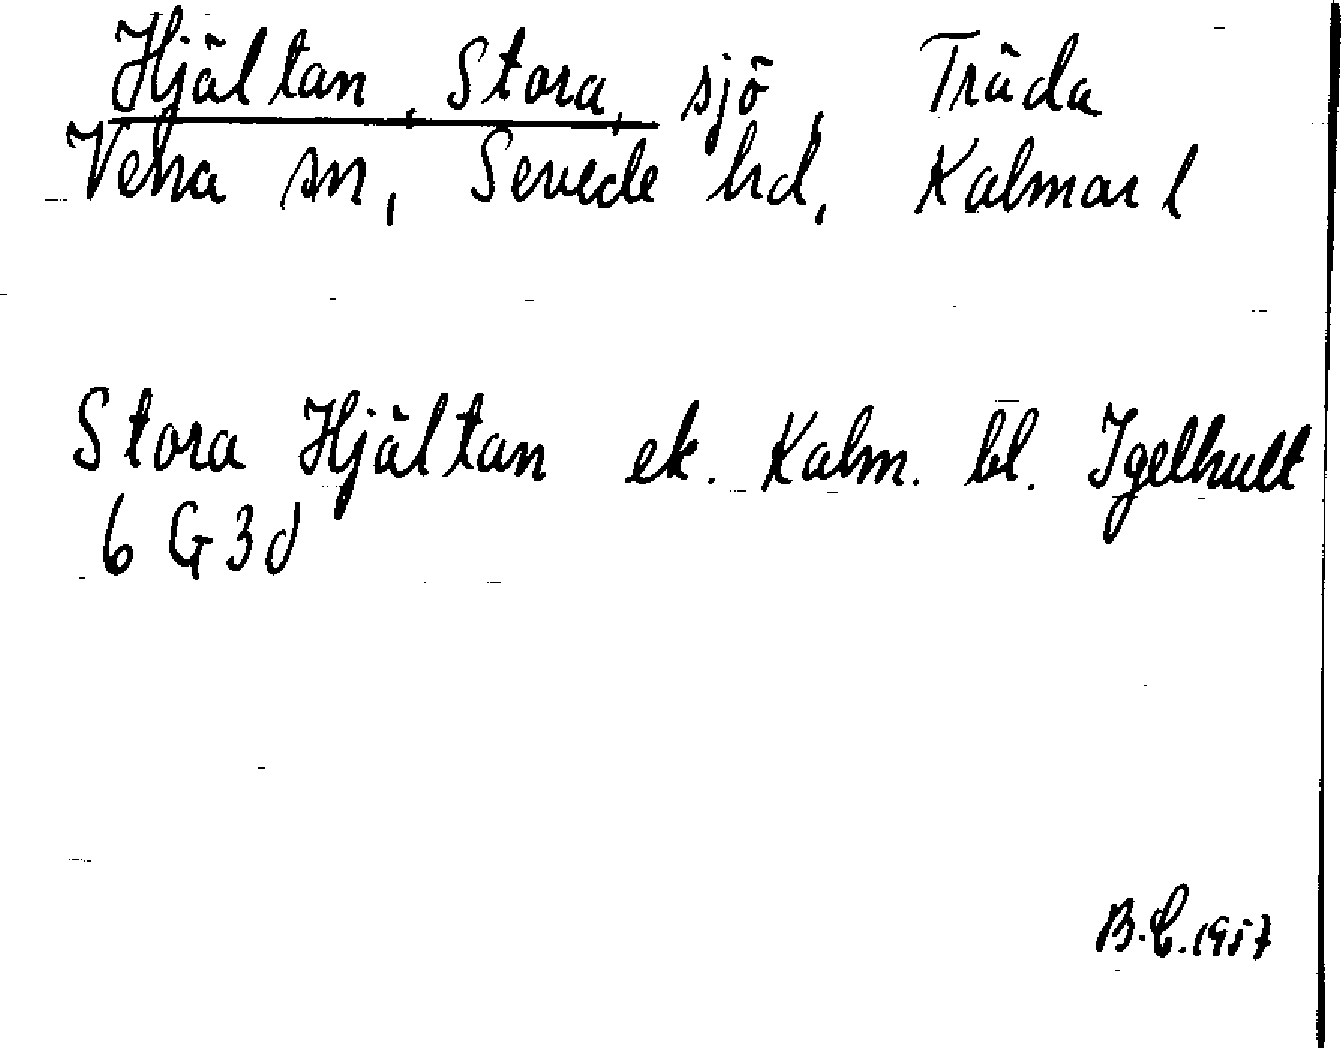 Hjältan, Stora, sjö, Träda
Vena sn, Sevede hd, Kalmar l
Stora Hjältan ek. Kalm. bl. Igelhult
6 G 3 d
B.C. 1957